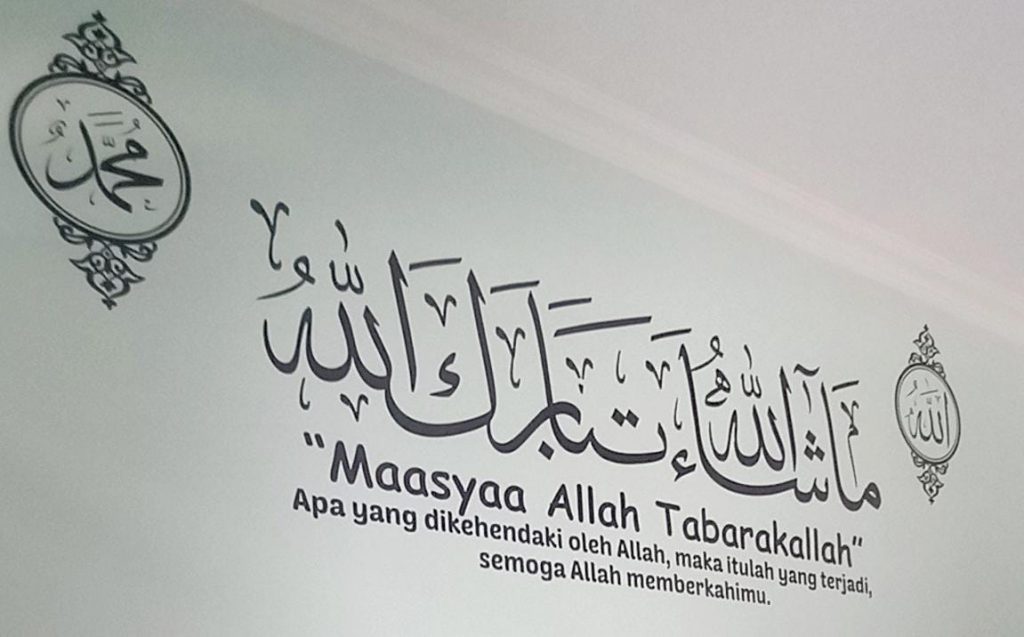 محمد
ما شاء الله تبارك الله
الله
"Maasyaa Allah Tabarakallah"
Apa yang dikehendaki oleh Allah, maka itulah yang terjadi,
semoga Allah memberkahimu.